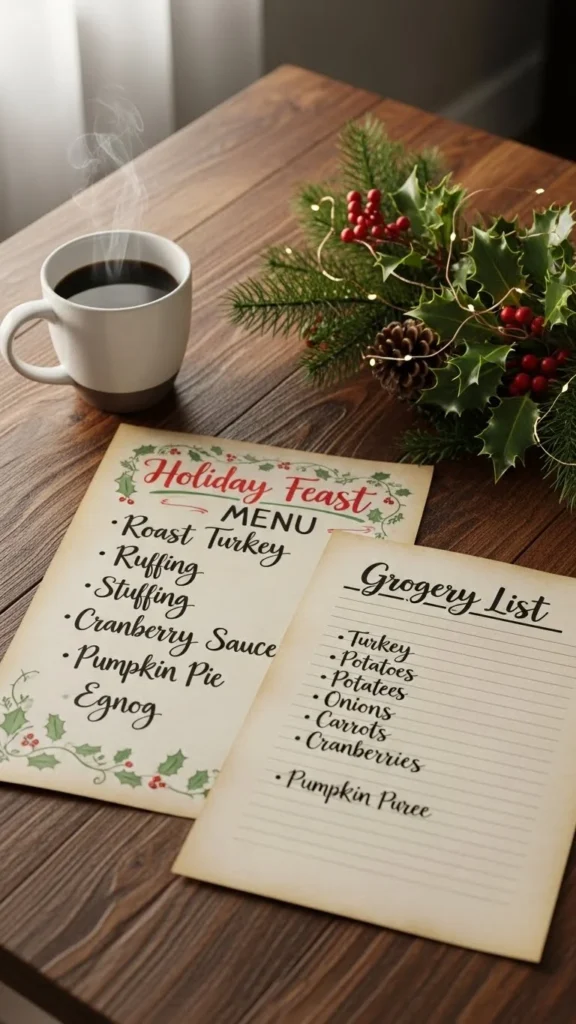 Holiday Feast
MENU
• Roast Turkey
• Ruffing
• Stuffing
• Cranberry Sauce
• Pumpkin Pie
Egnog
Grogery List
• Turkey
• Potatoes
• Potatees
• Onions
• Carrots
• Cranberries
• Pumpkin Puree